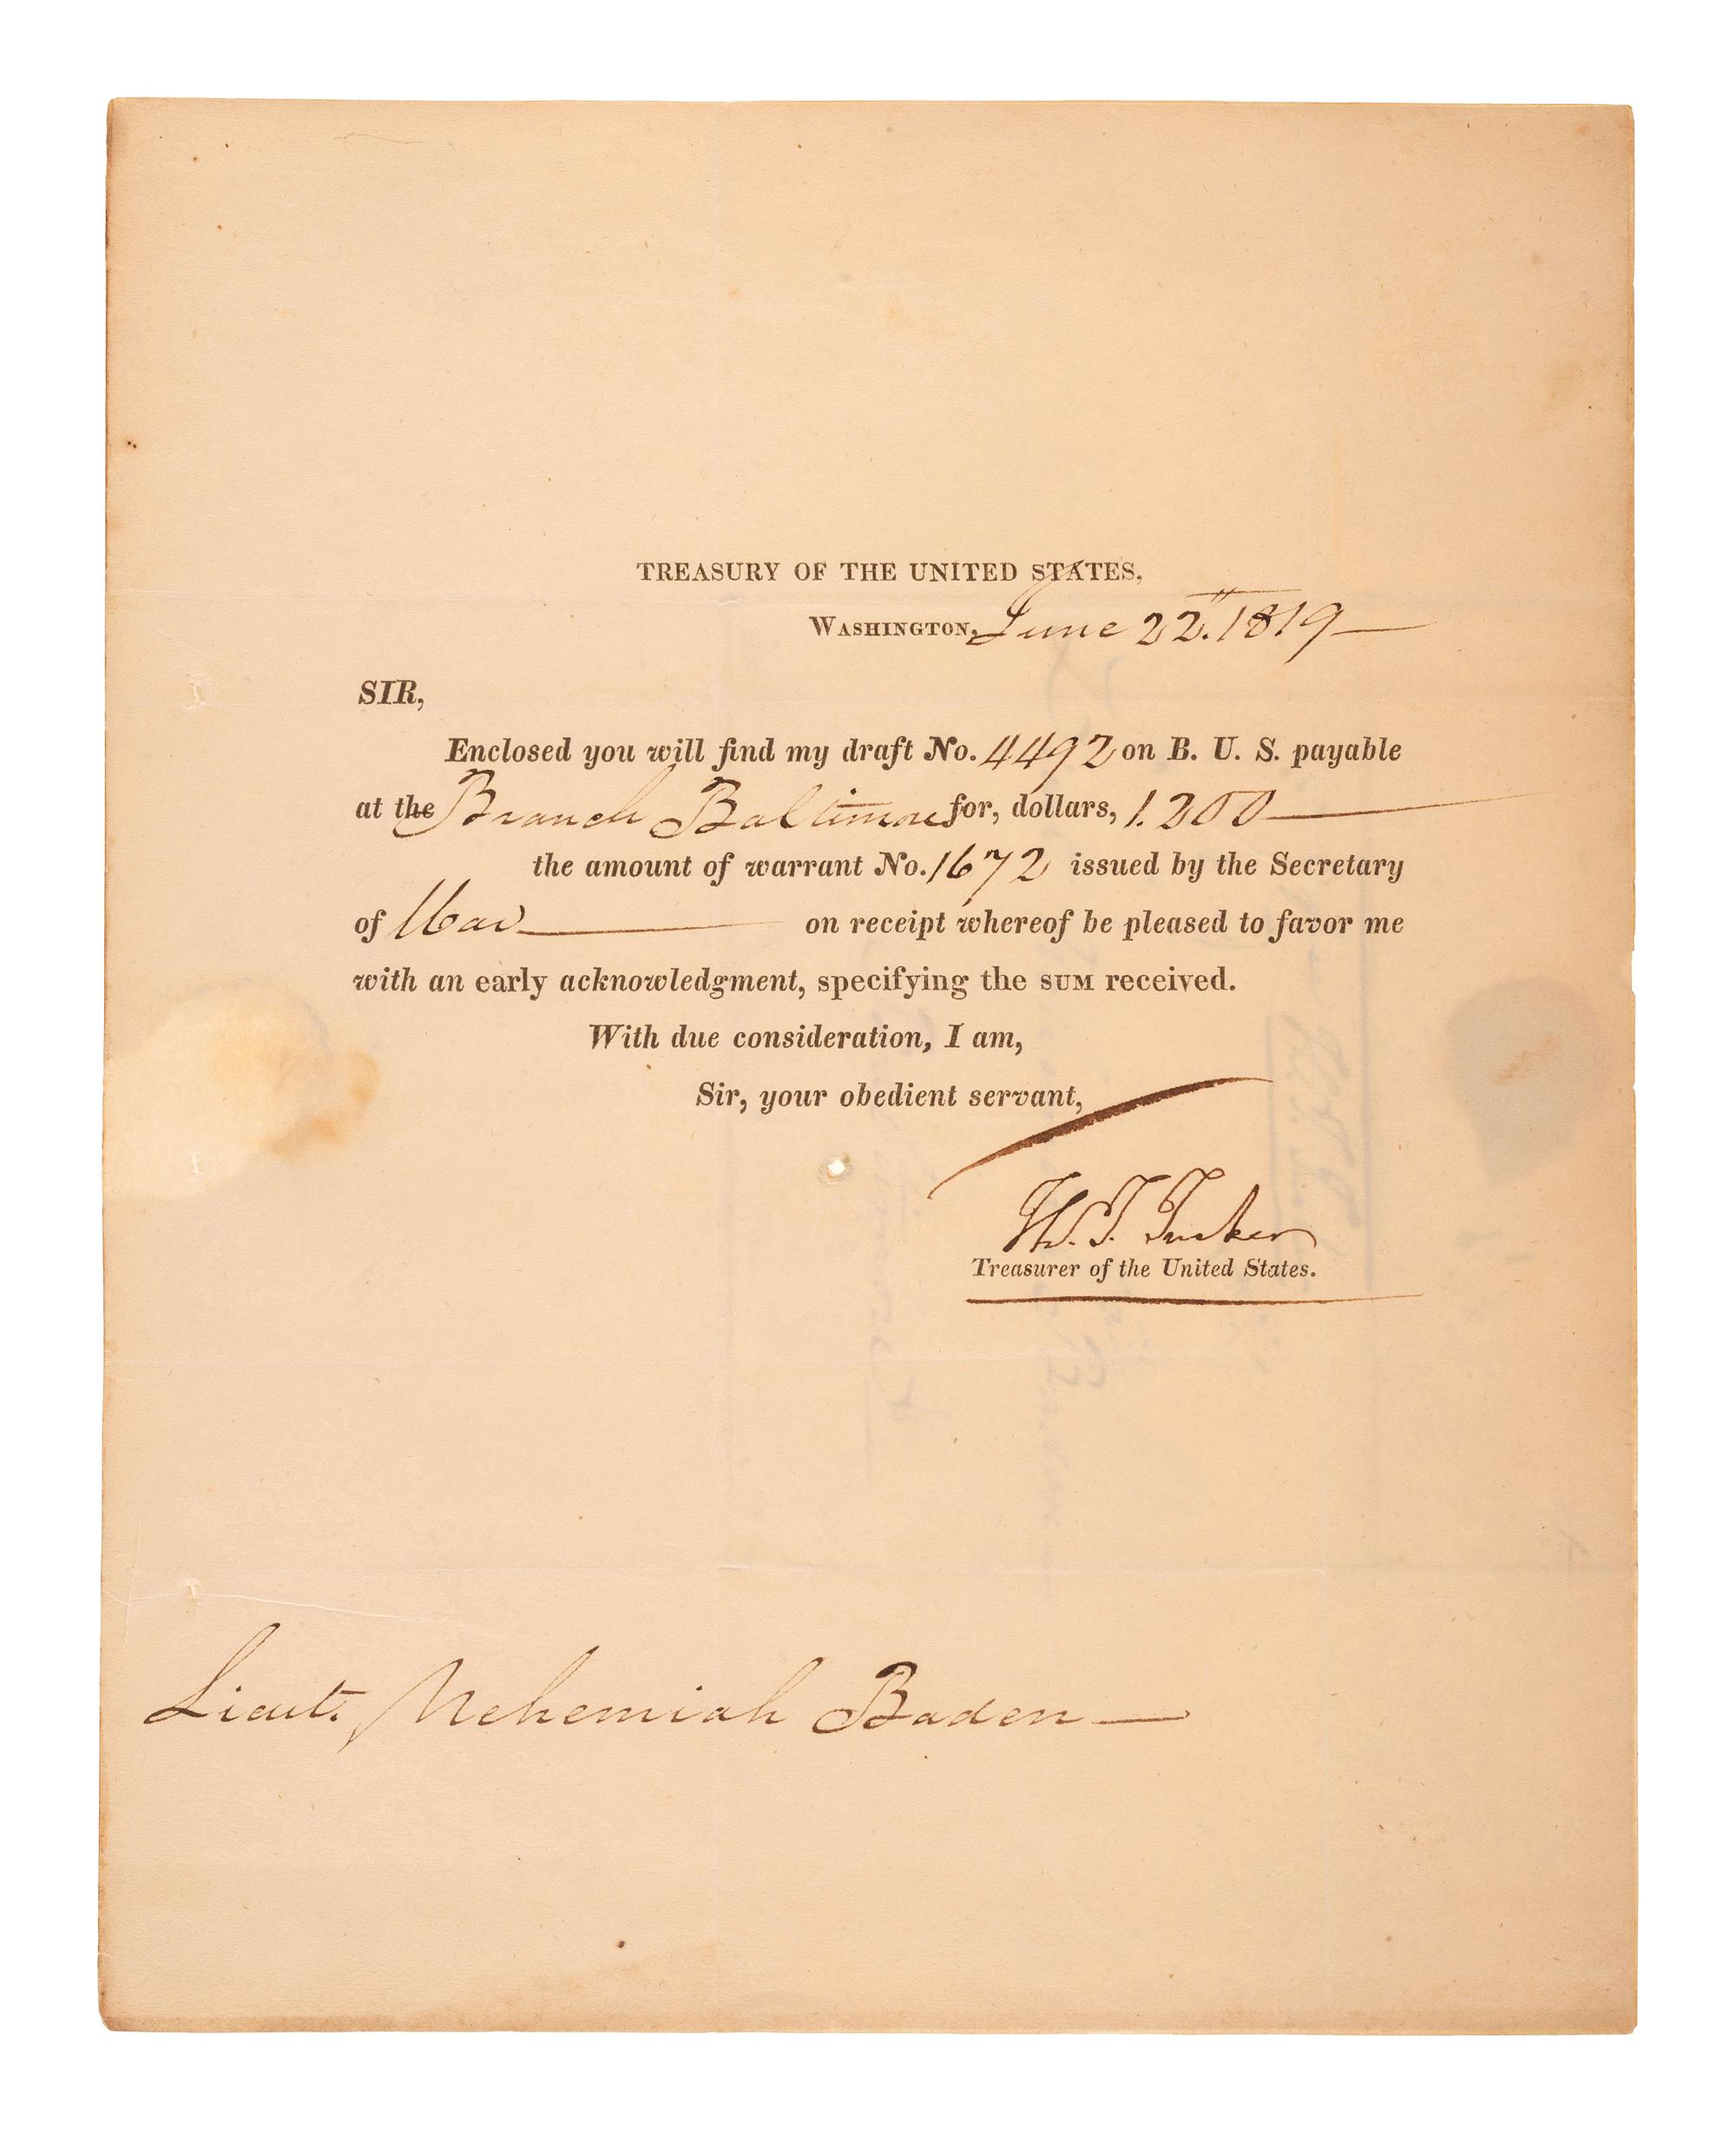 TREASURY OF THE UNITED STATES,
WASHINGTON, June 22. 1819
SIR,
Enclosed you will find my draft No. 4492 on B. U. S. payable
at the Branch Baltimore for, dollars, 1.200
the amount of warrant No. 1672 issued by the Secretary
of War on receipt whereof be pleased to favor me
with an early acknowledgment, specifying the SUM received.
With due consideration, I am,
Sir, your obedient servant,
Th. T. Tucker
Treasurer of the United States.
Lieut. Nehemiah Baden